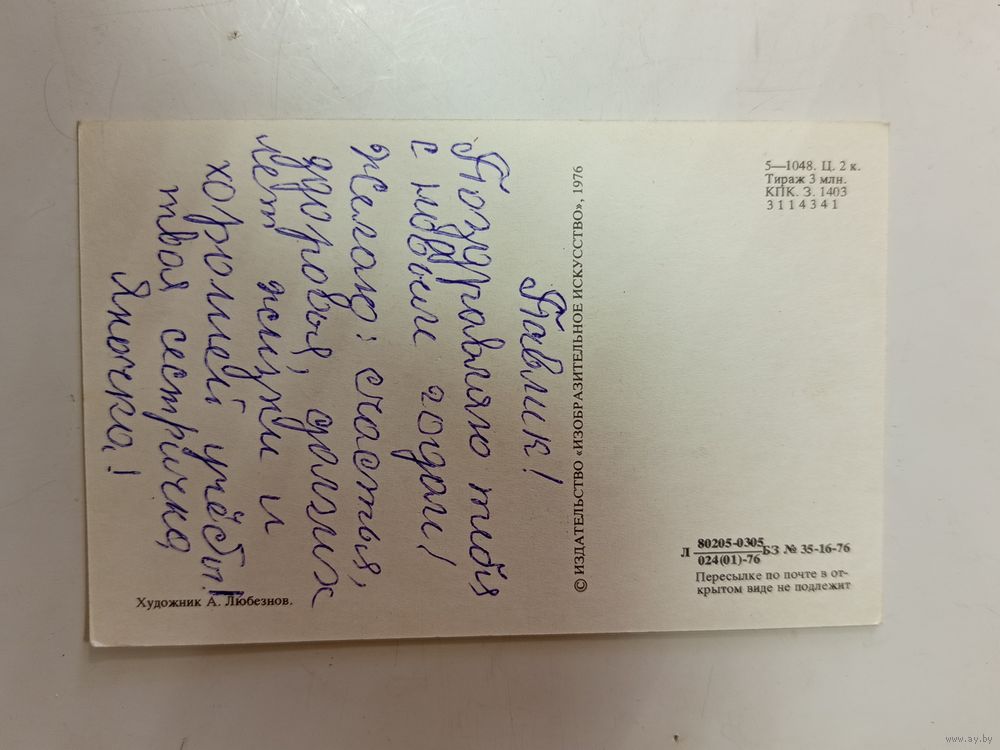 Павлик!
Поздравляю тебя
с новым годом!
Желаю: счастья,
здоровья, долгих
лет жизни и
хорошей учёбы!
твоя сестричка,
Яночка!
Художник А. Любезнов.
© ИЗДАТЕЛЬСТВО «ИЗОБРАЗИТЕЛЬНОЕ ИСКУССТВО», 1976
5—1048. Ц. 2 к.
Тираж 3 млн.
КПК. З. 1403
3114341
Л 80205-0305 БЗ № 35-16-76
024(01)-76
Пересылке по почте в от-
крытом виде не подлежит
www.ay.by